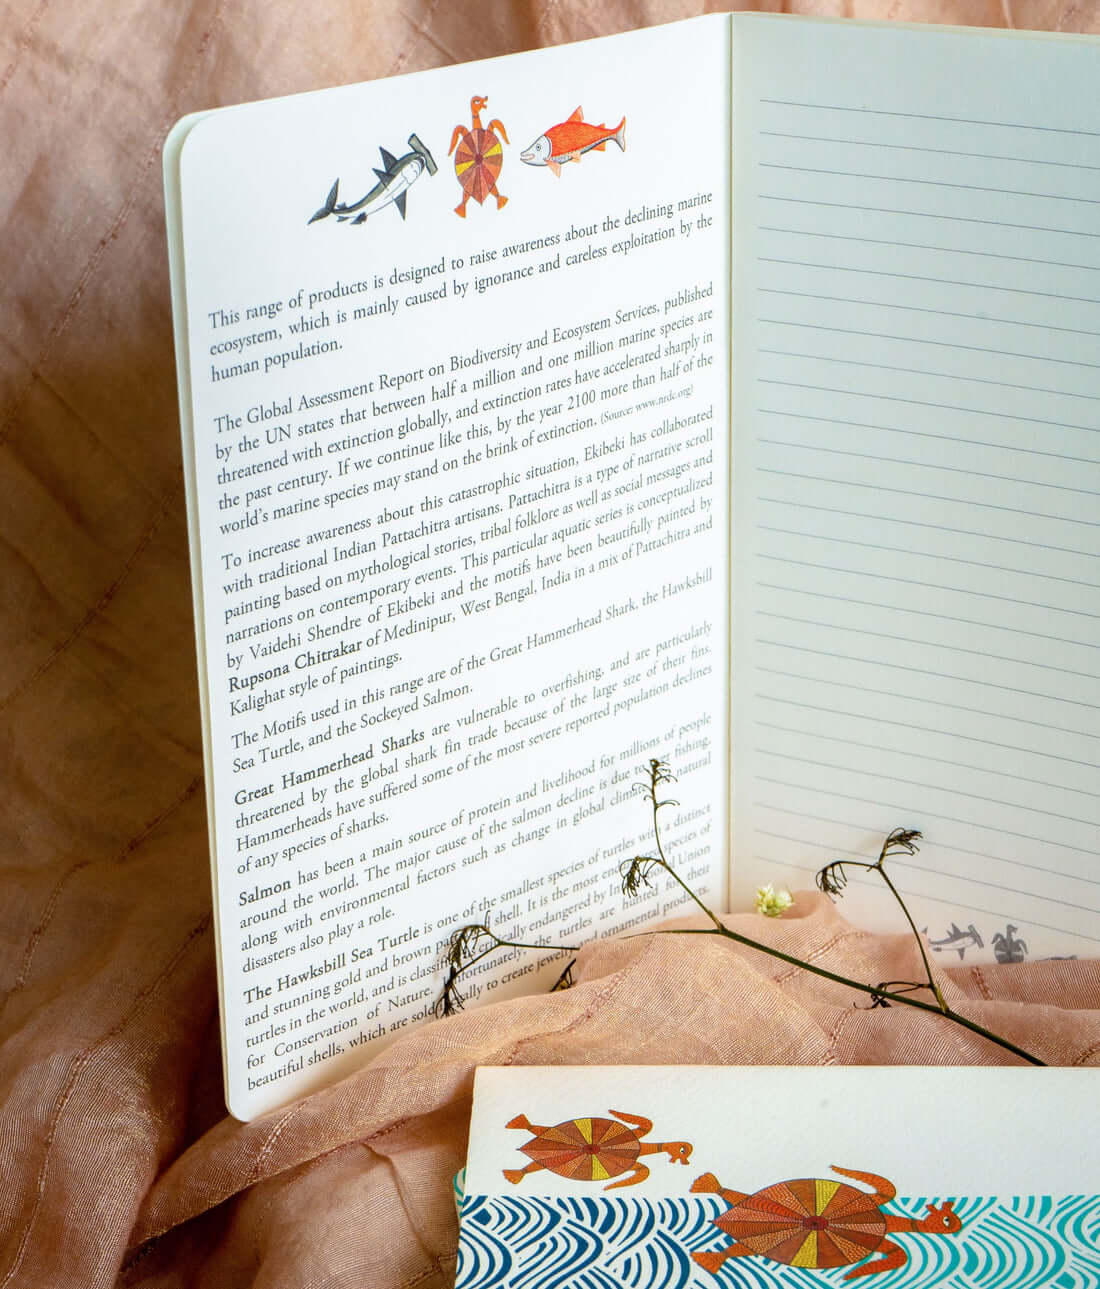 This range of products is designed to raise awareness about the declining marine
ecosystem, which is mainly caused by ignorance and careless exploitation by the
human population.
The Global Assessment Report on Biodiversity and Ecosystem Services, published
by the UN states that between half a million and one million marine species are
threatened with extinction globally, and extinction rates have accelerated sharply in
the past century. If we continue like this, by the year 2100 more than half of the
world's marine species may stand on the brink of extinction. (Source: www.nrdc.org)
To increase awareness about this catastrophic situation, Ekibeki has collaborated
with traditional Indian Pattachitra artisans. Pattachitra is a type of narrative scroll
painting based on mythological stories, tribal folklore as well as social messages and
narrations on contemporary events. This particular aquatic series is conceptualized
by Vaidehi Shendre of Ekibeki and the motifs have been beautifully painted by
Rupsona Chitrakar of Medinipur, West Bengal, India in a mix of Pattachitra and
Kalighat style of paintings.
The Motifs used in this range are of the Great Hammerhead Shark, the Hawksbill
Sea Turtle, and the Sockeyed Salmon.
Great Hammerhead Sharks are vulnerable to overfishing, and are particularly
threatened by the global shark fin trade because of the large size of their fins.
Hammerheads have suffered some of the most severe reported population declines
of any species of sharks.
Salmon has been a main source of protein and livelihood for millions of people
around the world. The major cause of the salmon decline is due to fishing,
along with environmental factors such as change in global natural
disasters also play a role.
The Hawksbill Sea Turtle is one of the smallest species of turtles with a distinct
and stunning gold and brown shell. It is the most species of
turtles in the world, and is critically endangered by Union
for Conservation of Nature. Unfortunately, the turtles are hunted for their
beautiful shells, which are sold to create jewelry and ornamental products.